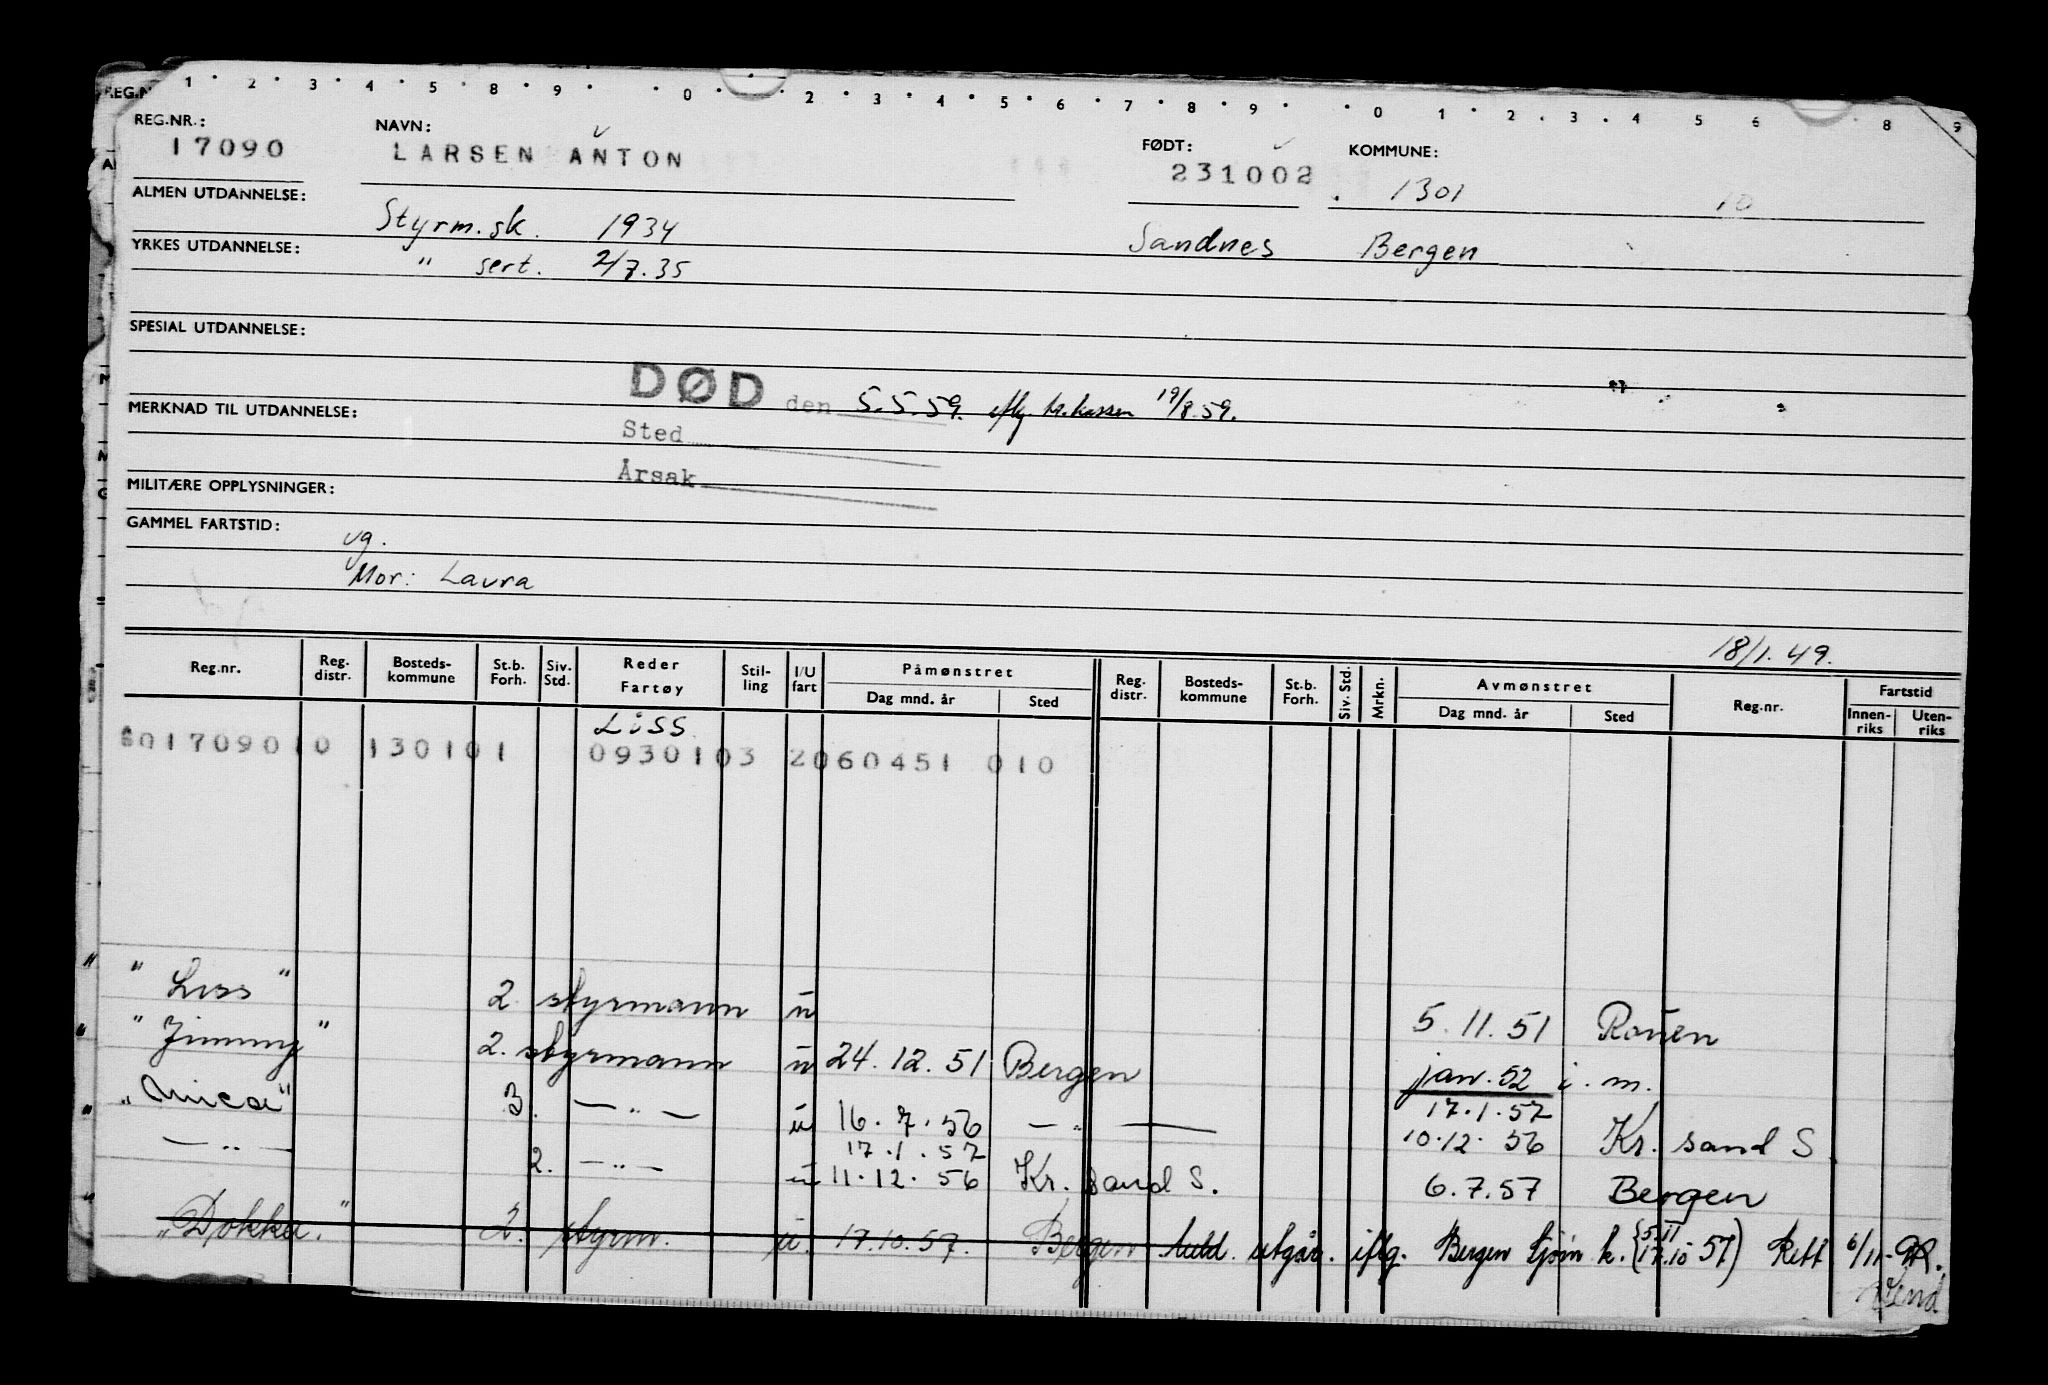 1 · 2 · 3 · 4 · 5 · 8 · 9 · · 0 · · 2 · 3 · 4 · 5 · 6 · 7 · 8 · 9 · · 0 · 1 · 2 · 3 · 4 5 6 8 9
REG.NR.: NAVN: FØDT: KOMMUNE:
17090 LARSEN ANTON 231002 1301 10
ALMEN UTDANNELSE: Styrm.sk. 1934 Sandnes Bergen
YRKES UTDANNELSE: " sert. 2/7.35
SPESIAL UTDANNELSE:
DØD den 5.5.59. iflg. 19/8.59.
MERKNAD TIL UTDANNELSE:
Sted
Årsak
MILITÆRE OPPLYSNINGER:
GAMMEL FARTSTID:
ug.
Mor: Laura
18/1.49.
Reg.nr. Reg. distr. Bosteds-kommune St.b. Forh. Siv. Std. Reder Fartøy Stil-ling I/U fart Påmønstret Dag mnd. år Sted Reg. distr. Bosteds-kommune St.b. Forh. Siv. Std. Mrkn. Avmønstret Dag mnd. år Sted Reg.nr. Fartstid Innen-riks Uten-riks
Liss
01709010 130101 0930103 2060451 010
"Liss" 2. styrmann u 5.11.51 Rouen
"Jimmy" 2. styrmann u 24.12.51 Bergen jan. 52 i. m.
17.1.57
"Mica" 3. — " — u 16.7.56 — " — 10.12.56 Kr. sand S.
17.1.57
— " — 2. — " — u 11.12.56 Kr. sand S. 6.7.57 Bergen
"Dokka." 2. styrm. u. 17.10.57. Bergen utgår. iflg. Bergen k. (5.11 17.10 57) Rett 6/11-
Vend